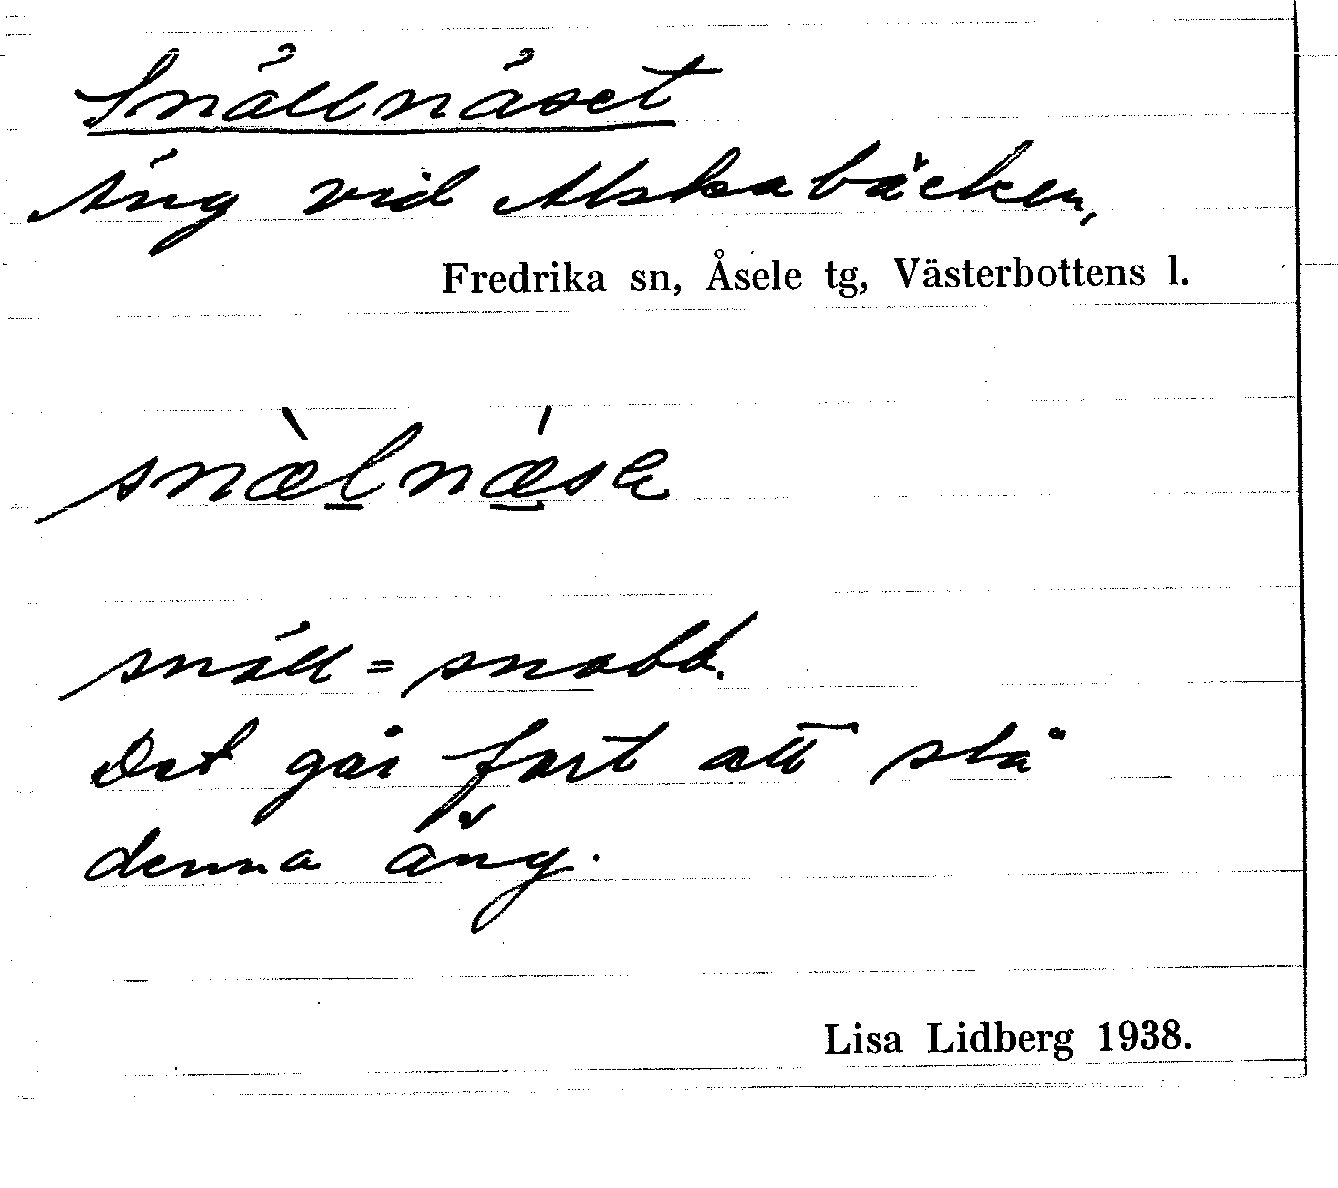 Snällnäset
Äng vid Alskabäcken,
Fredrika sn, Åsele tg, Västerbottens l.
snæ̀l̲nǽ̲sa
snäll = snabb.
Det går fort att slå
denna äng.
Lisa Lidberg 1938.